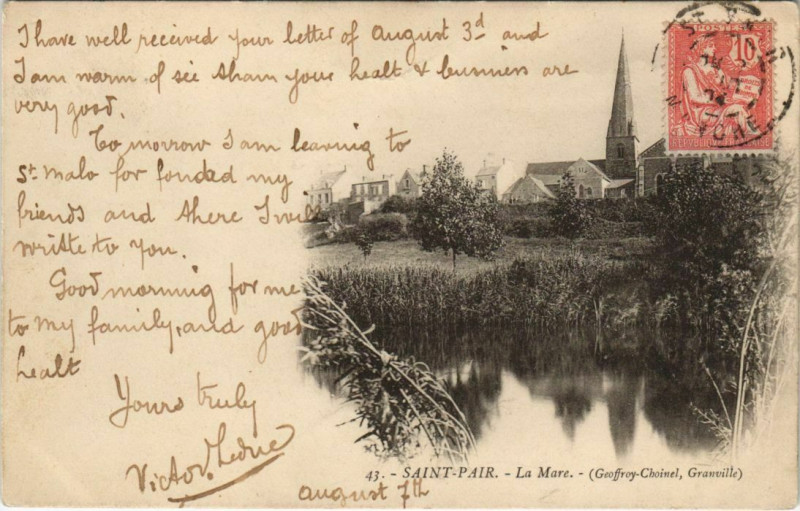 I have well received your letter of August 3d and
I am warm of sii sham your healt & business are
very good.
To morrow I am leaving to
St. Malo for fonded my
friends and there I will
writte to you.
Good morning for me
to my family, and good
healt
Yours truly
Victor Leduc
August 7th
43. - SAINT-PAIR. - La Mare. - (Geoffroy-Choinel, Granville)
POSTES
10
REPUBLIQUE FRANÇAISE